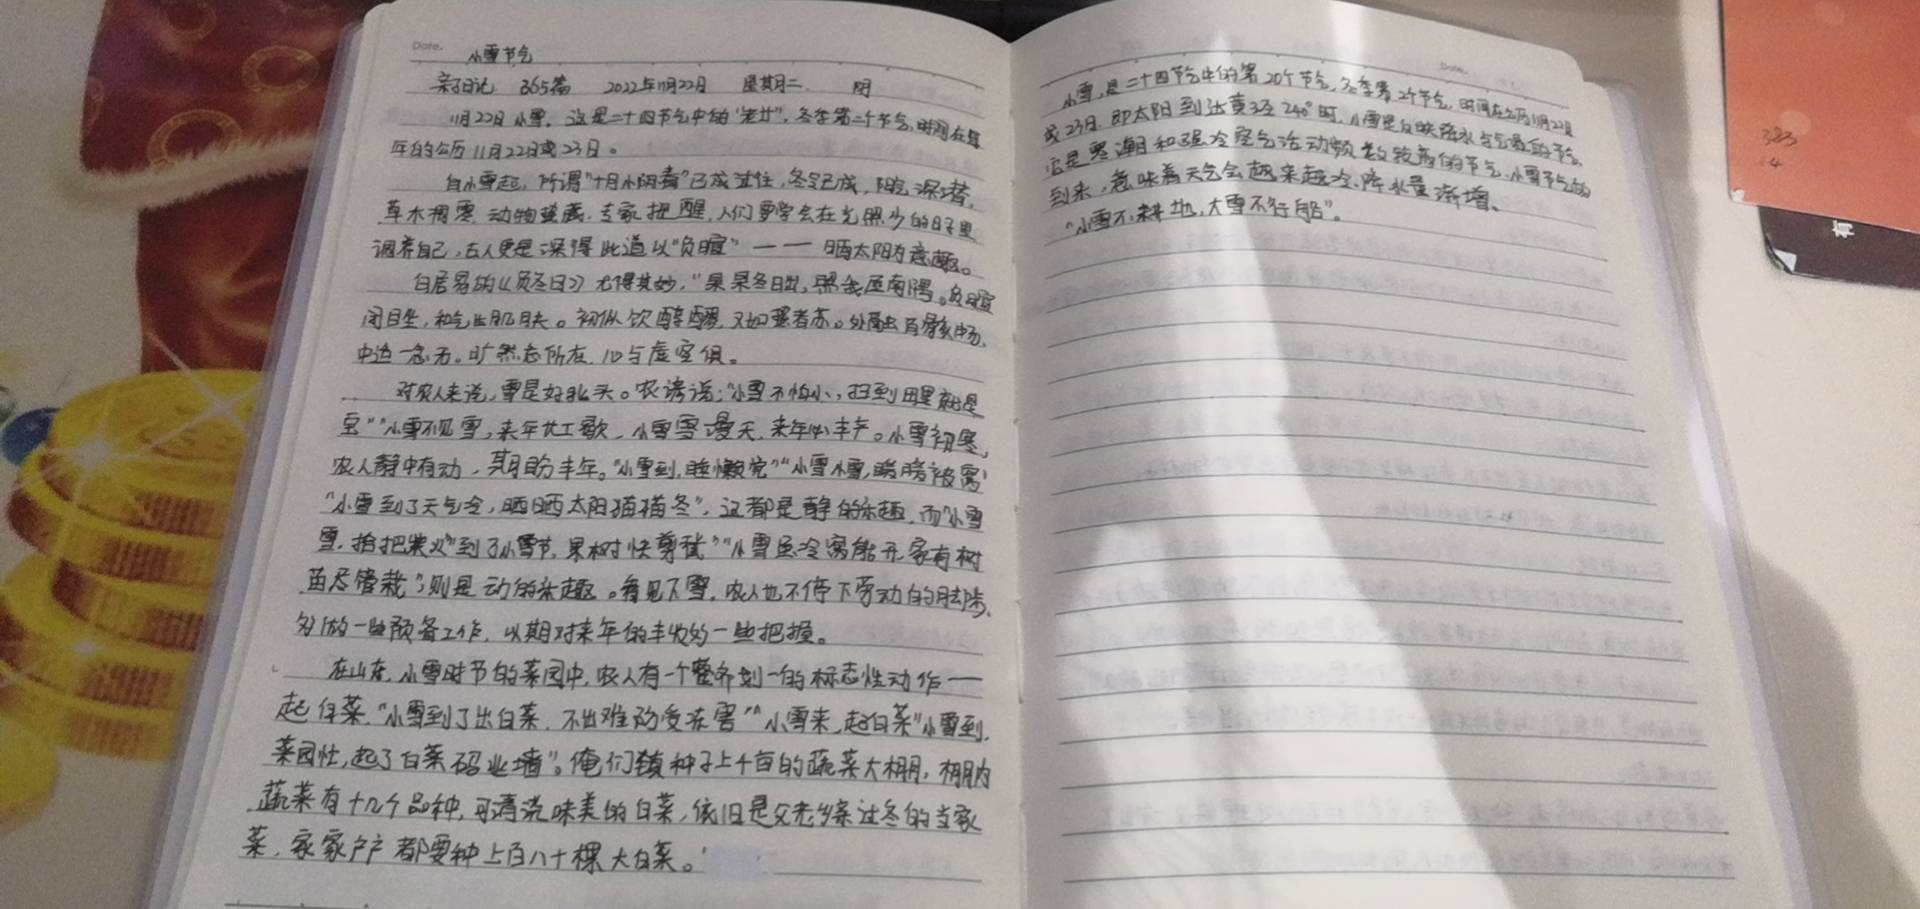 Date.
小雪节气
亲子日记 365篇 2022年11月22日 星期二. 阴
11月22日小雪。这是二十四节气中的"老廿",冬季第二个节气,时间在每
年的公历11月22日或23日。
自小雪起,所谓"十月小阴春"已成过往,冬令已成,阳气深潜,
草木凋零.动物蛰藏.专家提醒,人们要学会在光照少的日子里
调养自己,古人更是深得此道以"负暄"——晒太阳为意趣。
白居易的《负冬日》尤得其妙,"杲杲冬日出,照我屋南隅。负暄
闭目坐,和气生肌肤。初似饮醇醪,又如蛰者苏。外融百骸畅,
中适一念无。旷然忘所在,心与虚空俱。
对农人来说,雪是好兆头。农谚说:"小雪不怕小,扫到田里就是
宝""小雪不见雪,来年长工歇.小雪雪漫天,来年必丰产。小雪初寒,
农人静中有动,期盼丰年。"小雪到,睡懒觉""小雪小雪,暖暖被窝"
"小雪到了天气冷,晒晒太阳猫猫冬",这都是静的乐趣,而"小雪
雪,拾把柴火""到了小雪节,果树快剪截""小雪虽冷窝能开,家有树
苗尽管栽",则是动的乐趣。看见下雪,农人也不停下劳动的脚步,
多做一些预备工作,以期对来年的丰收多一些把握。
在山东,小雪时节的菜园中,农人有一个整齐划一的标志性动作——
起白菜."小雪到了出白菜,不出难防受冻害""小雪来,起白菜""小雪到,
菜园忙,起了白菜码业墙"。俺们镇种子上千亩的蔬菜大棚,棚内
蔬菜有十几个品种,可清淡味美的白菜,依旧是父老乡亲过冬的当家
菜,家家户户都要种上百八十棵大白菜。
Date.
小雪,是二十四节气中的第20个节气,冬季第2个节气,时间在公历11月22日
或23日.即太阳到达黄经240°时.小雪是反映降水与气温的节气,
它是寒潮和强冷空气活动频数较高的节气.小雪节气的
到来,意味着天气会越来越冷、降水量渐增。
"小雪不耕地,大雪不行船"。
383
14
有